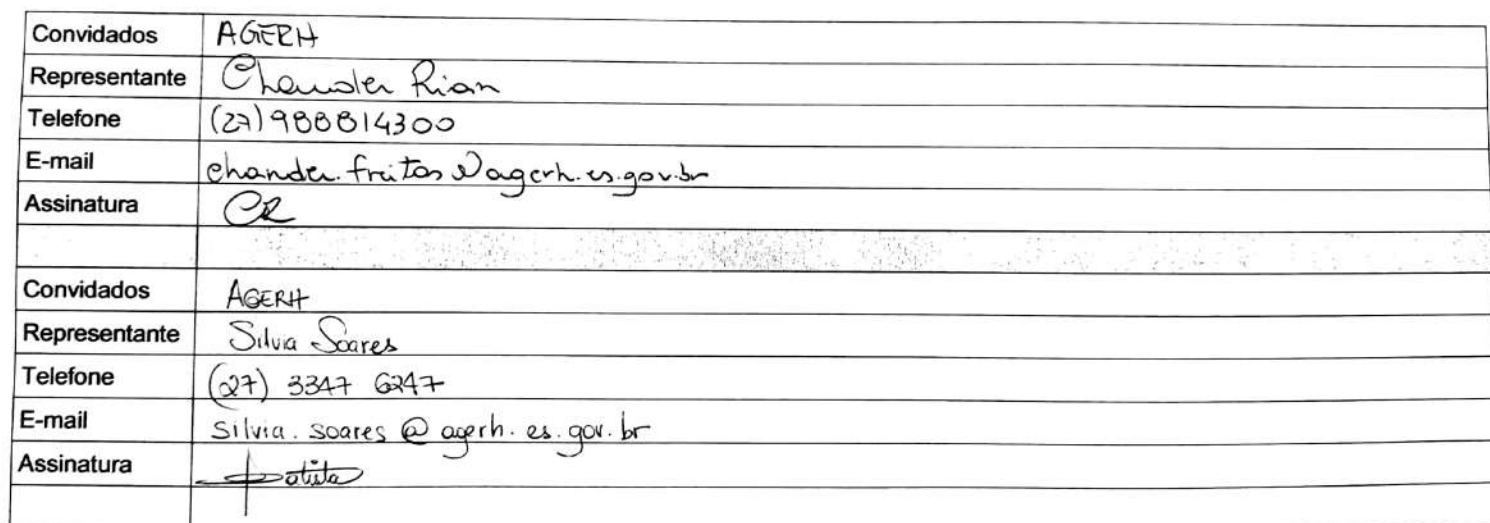 Convidados AGERH
Representante Chander Rian
Telefone (27) 988814300
E-mail chander.freitas@agerh.es.gov.br
Assinatura CR
Convidados AGERH
Representante Silvia Soares
Telefone (27) 3347 6247
E-mail silvia.soares@agerh.es.gov.br
Assinatura Batista